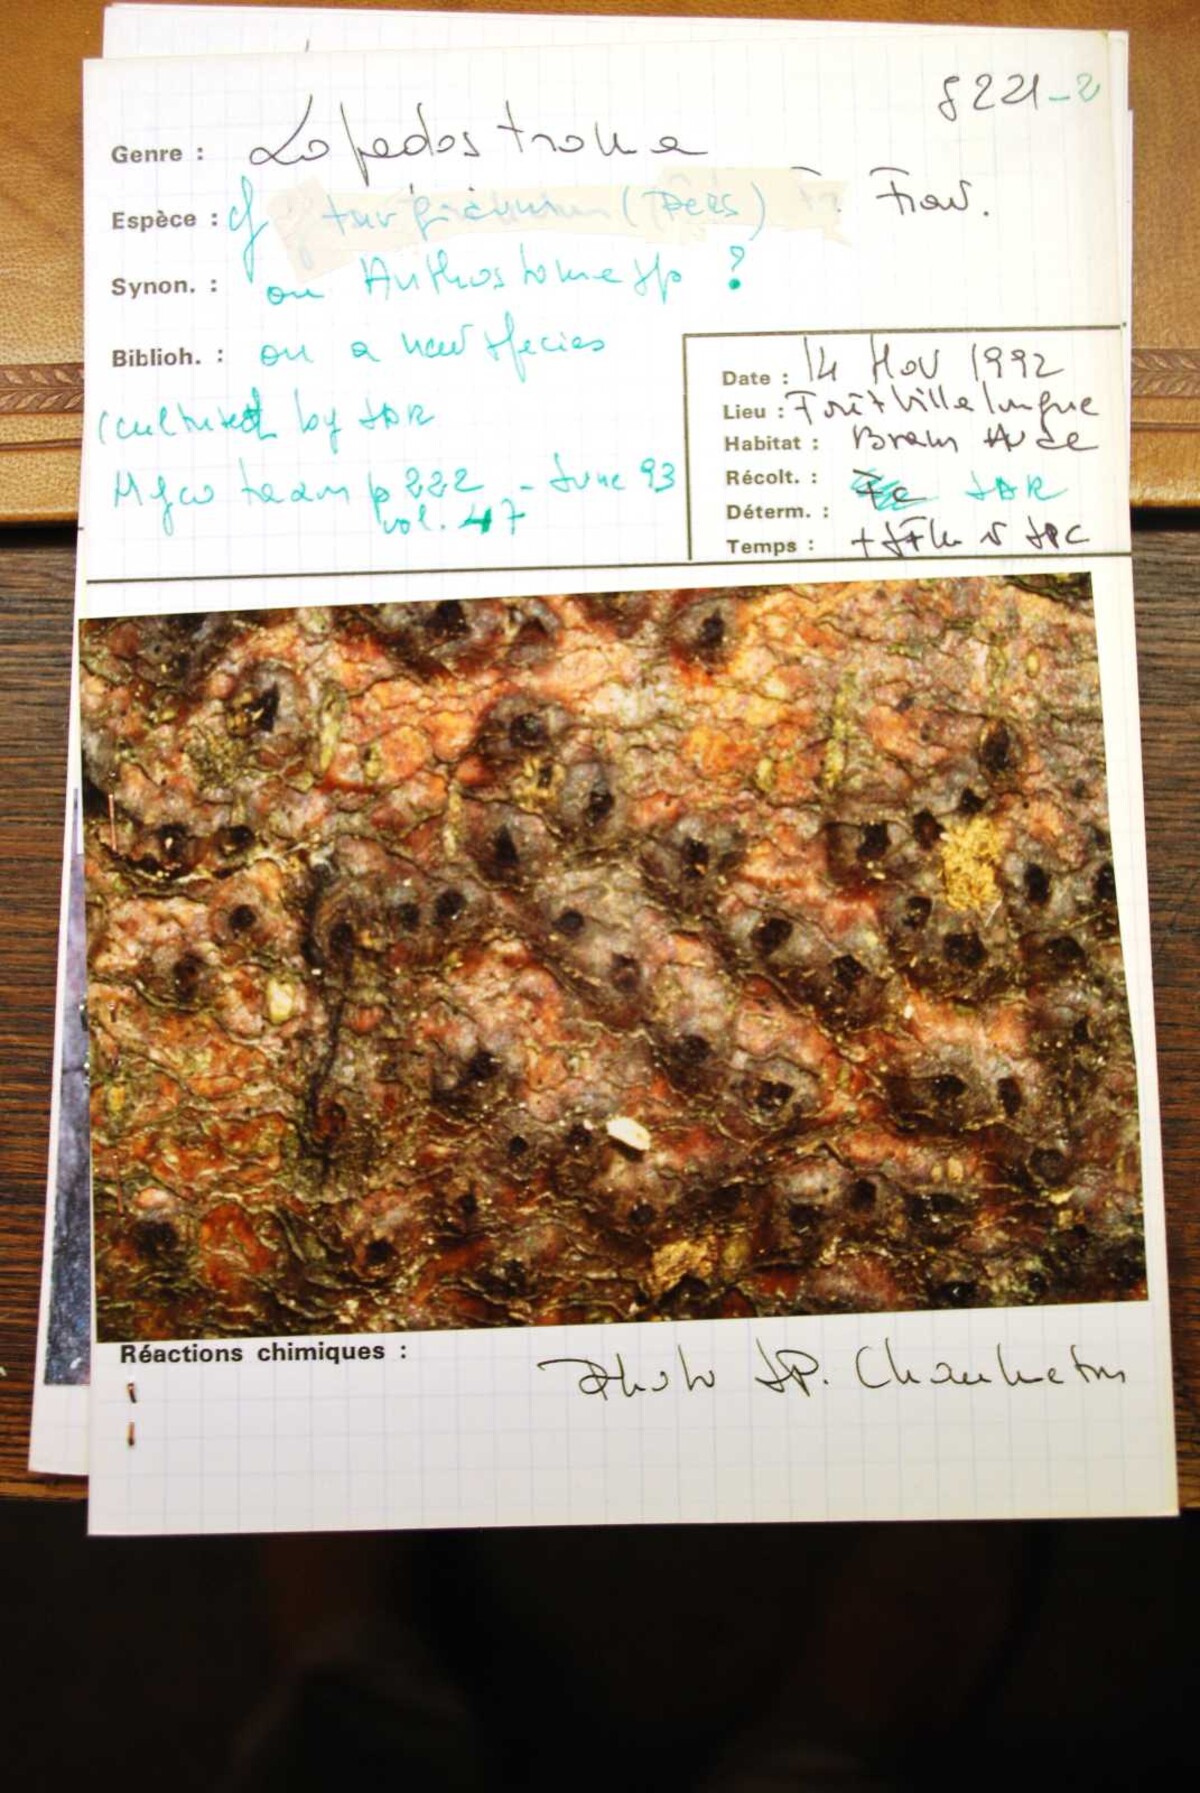 8221-2
Genre : Lopadostroma
Espèce : cf turgidum (Pers) Fr. Trav.
Synon. : ou Anthostoma sp ?
Biblioh. : ou a new species
(cultured by JDR
Myco team p 222 - June 93
vol. 47
Date : 14 Nov 1992
Lieu : Forêt Villelongue
Habitat : Bram Aude
Récolt. : JDR
Déterm. :
Temps :
Réactions chimiques :
Photo JP. Chaumeton